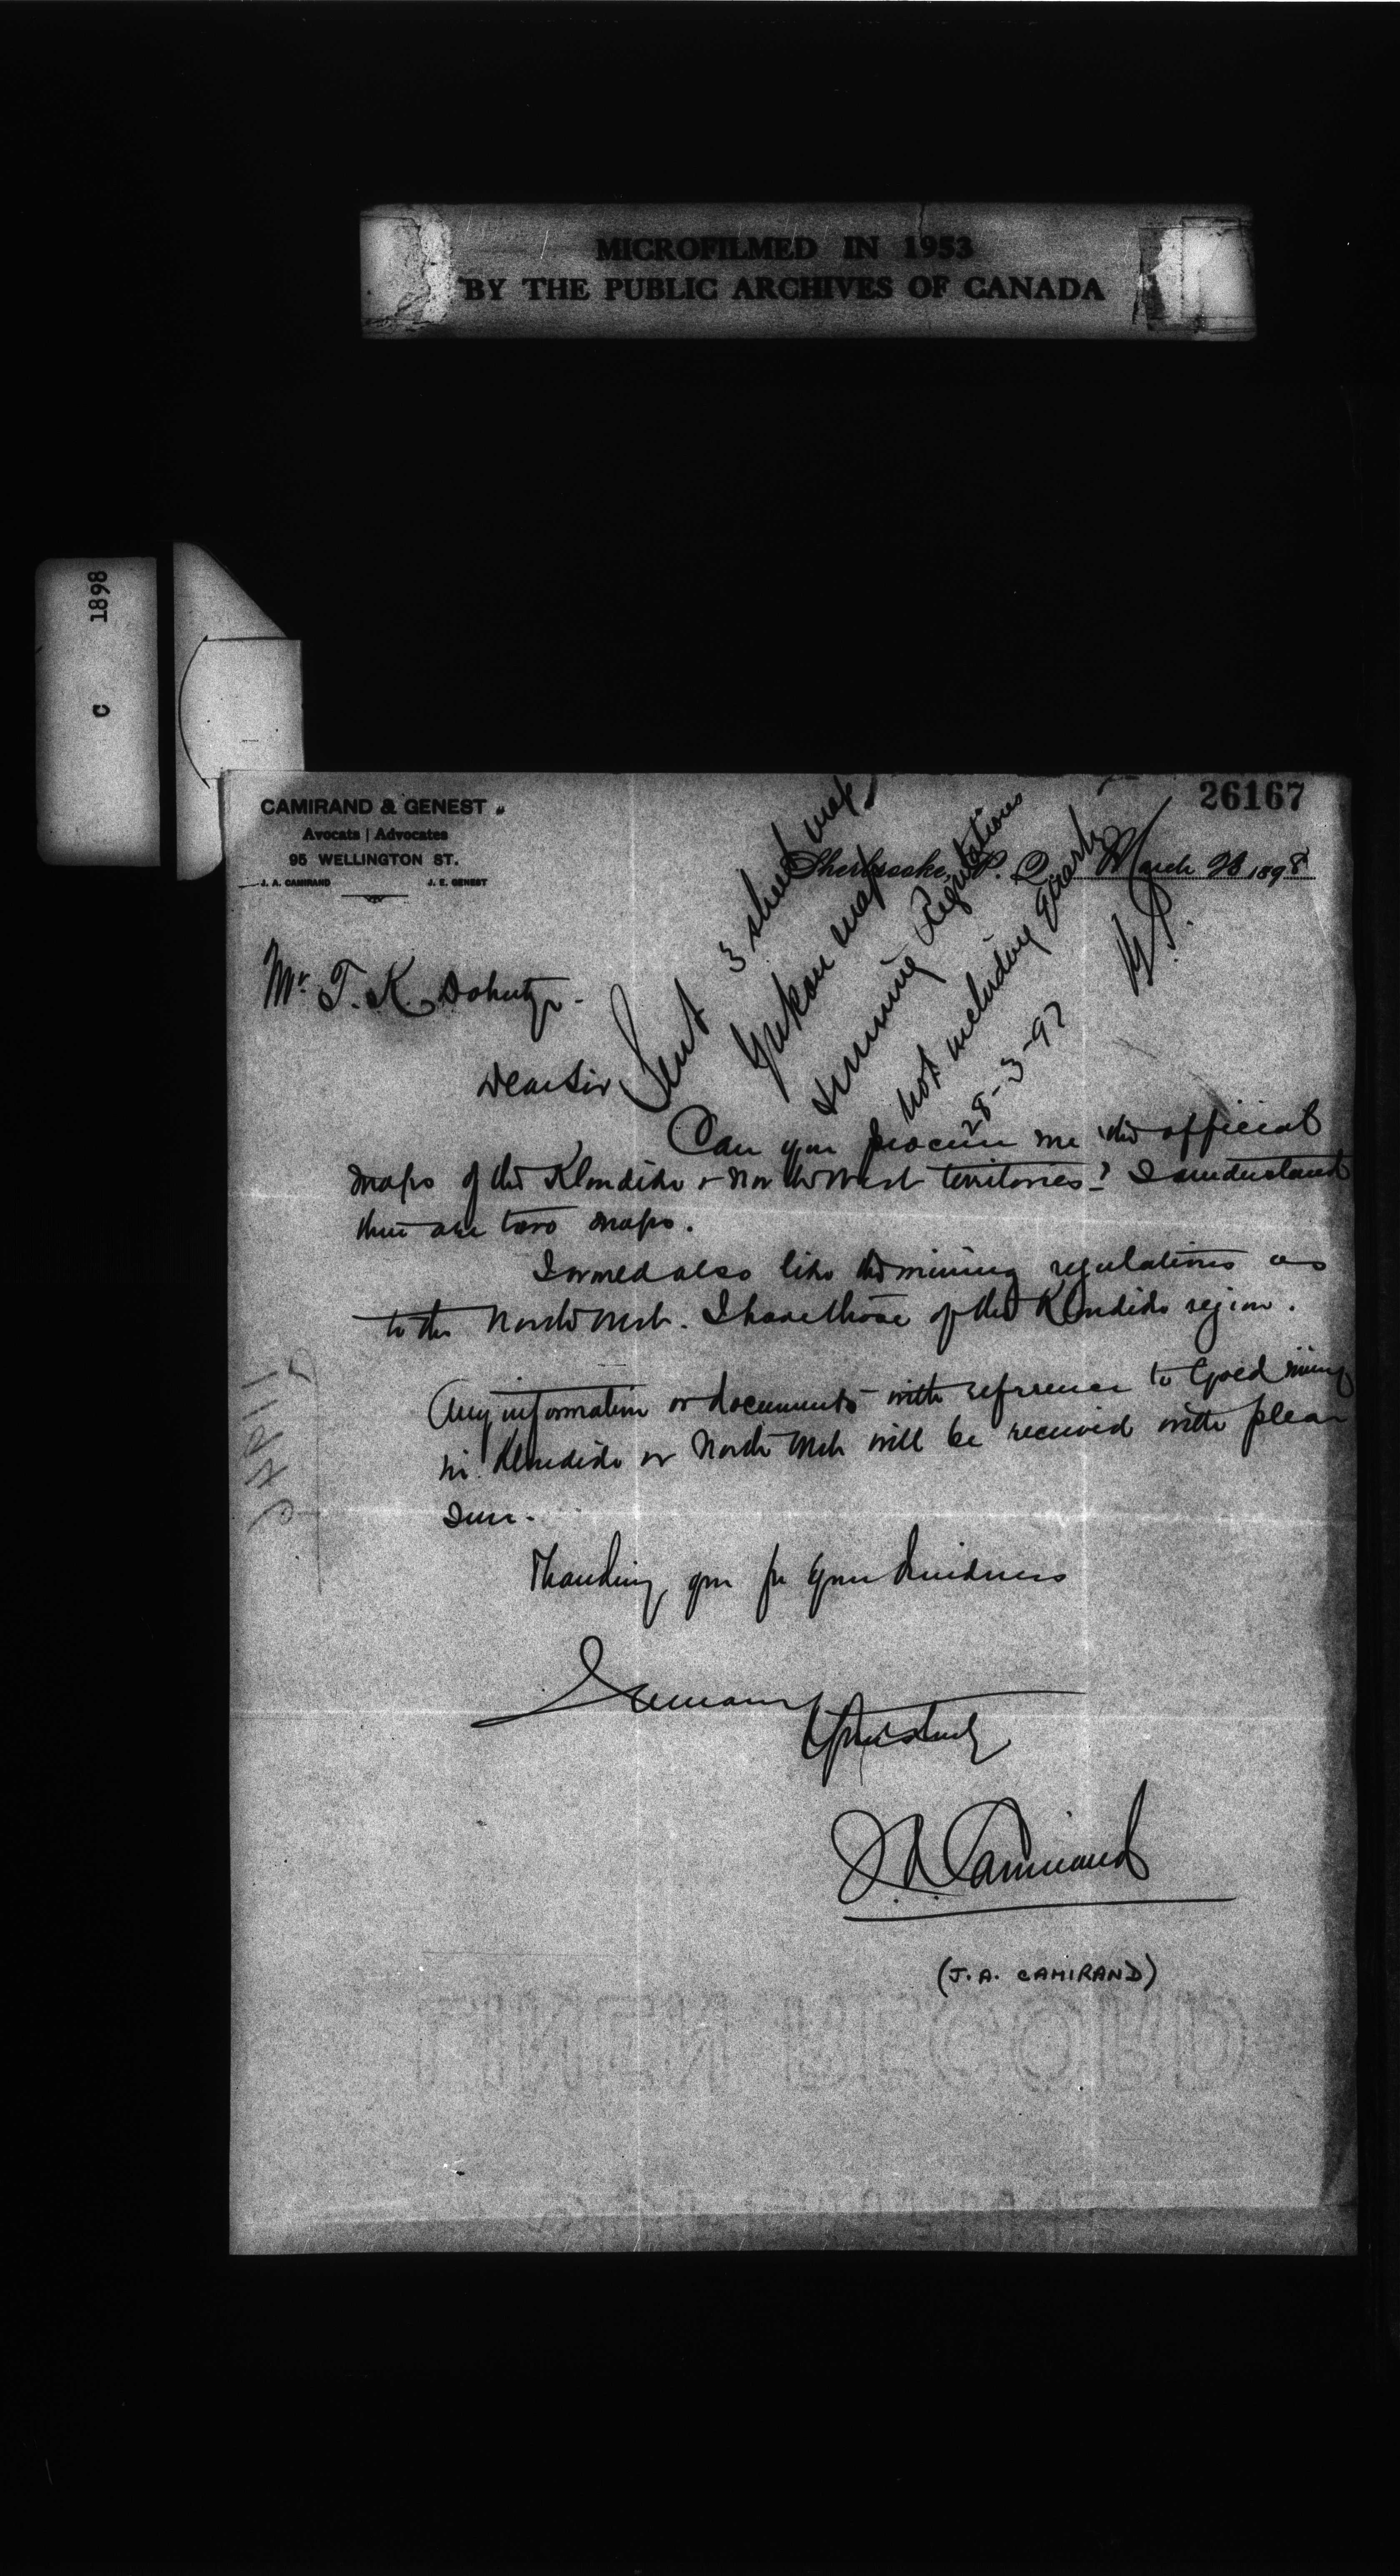 MICROFILMED IN 1953
BY THE PUBLIC ARCHIVES OF CANADA
C 1898
26167
CAMIRAND & GENEST
Avocats | Advocates
95 WELLINGTON ST.
J. A. CAMIRAND J. E. GENEST
Sherbrooke, P. Q. March 1898
Sent 3 sheet map
Yukon map
& mining Regulations
not including Quartz
28-3-97
Mr. T. K. Doherty-
Dear Sir
Can you procure me the official
maps of the Klondike & North West territories? I understand
there are two maps.
I would also like the mining regulations as
to the North West. I have those of the Klondike region.
Any information or documents with reference to Gold mining
in Klondike or North West will be received with plea
sure.
Thanking you for your kindness
I remain
Yours truly
J. A. Camirand
(J.A. CAMIRAND)